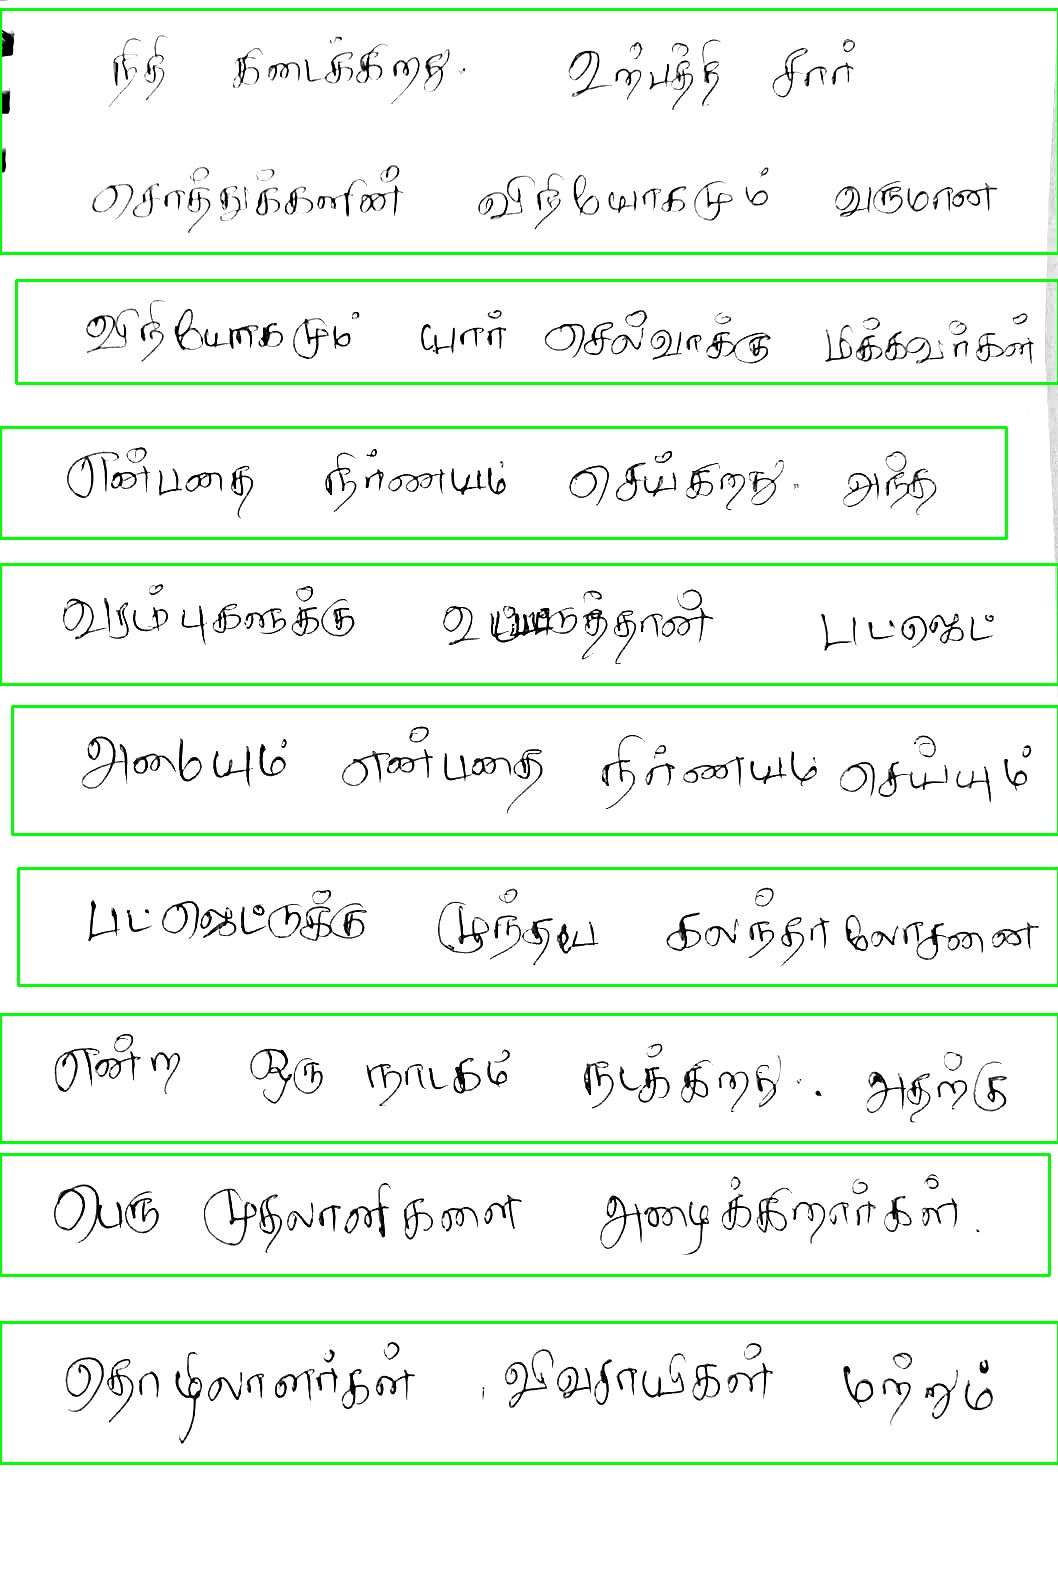 நிதி கிடைக்கிறது. உற்பத்தி சார்
சொத்துக்களின் வினியோகமும் வருமான
வினியோகமும் யார் செல்வாக்கு மிக்கவர்கள்
என்பதை நிர்ணயம் செய்கிறது. அந்த
வரம்புகளுக்கு பட்ஜெட்
அமையும் என்பதை நிர்ணயம் செய்யும்
பட்ஜெட்டுக்கு முந்தய கலந்தாலோசனை
என்ற ஒரு நாடகம் நடக்கிறது. அதற்கு
பெரு முதலாளிகளை அழைக்கிறார்கள்.
தொழிலாளர்கள் , விவசாயிகள் மற்றும்